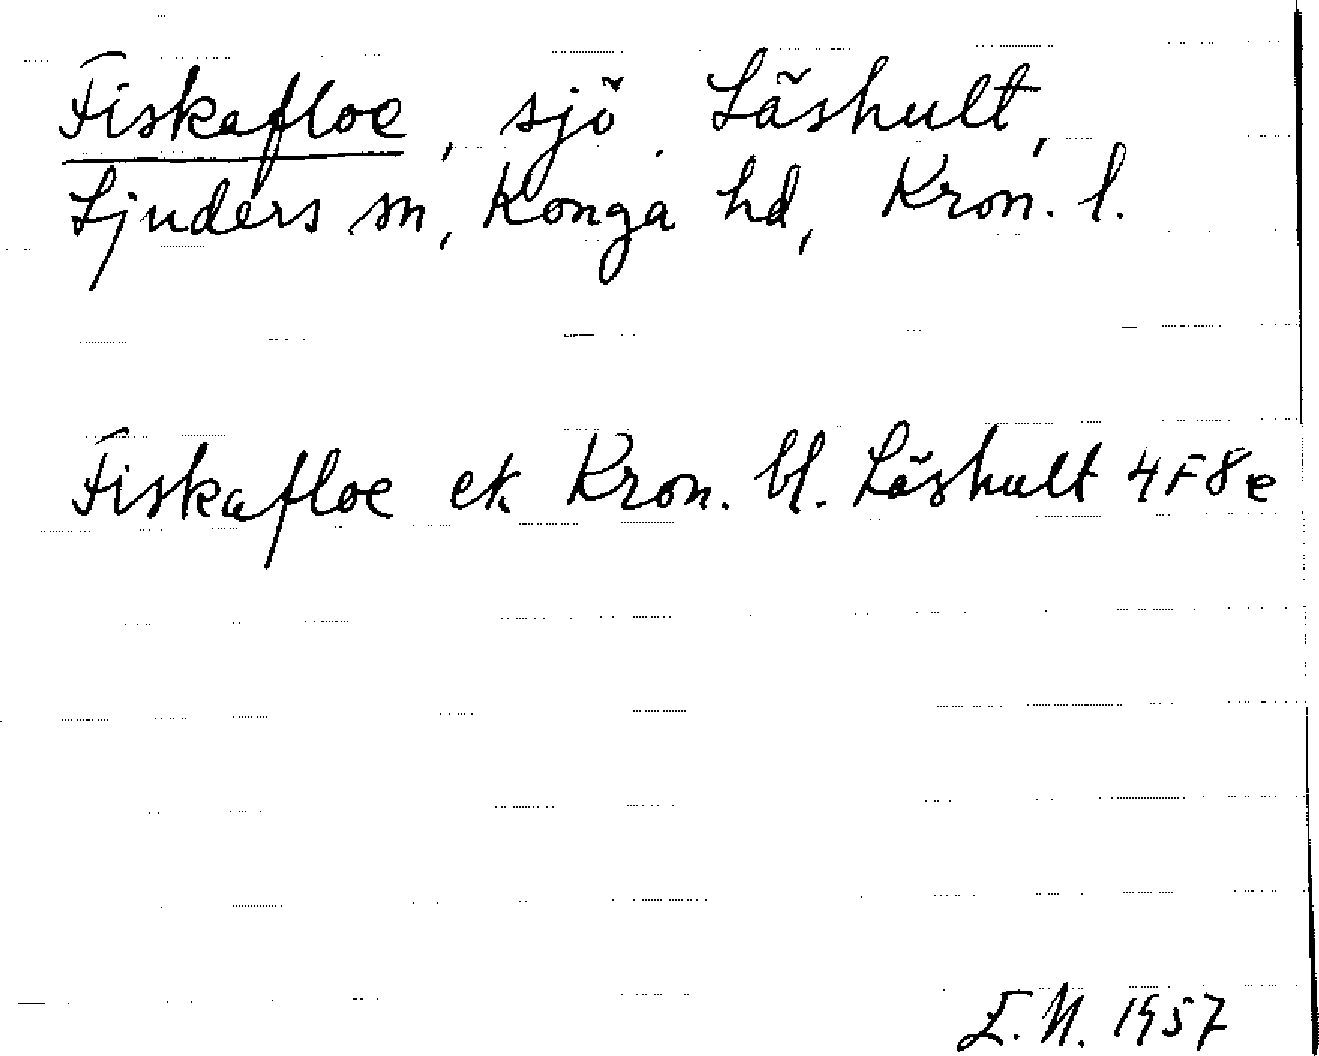 Fiskafloe, sjö. Läshult,
Ljuders sn, Konga hd, Kron. l.
Fiskafloe ek Kron. bl. Läshult 4F8e
E.N. 1957